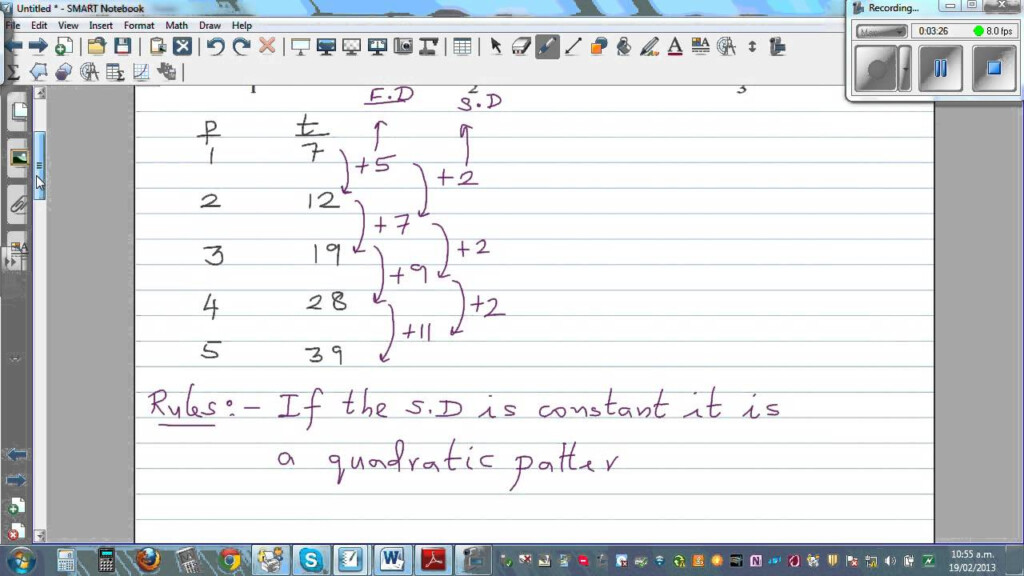 Untitled * - SMART Notebook
File Edit View Insert Format Math Draw Help
Recording...
0:03:26 8.0 fps
1 2 3
F.D S.D
P t
1 7
+5 +2
2 12
+7
3 19 +2
+9
4 28 +2
+11
5 39
Rules:- If the S.D is constant it is
a quadratic patter
10:55 a.m.
19/02/2013